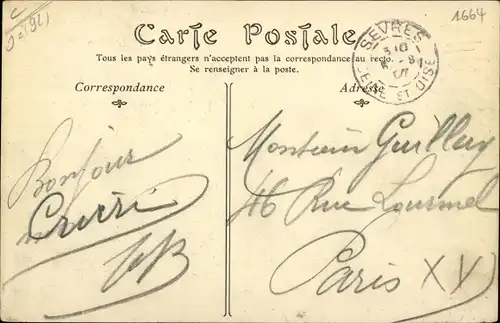 c
1664
Carte Postale
Tous les pays étrangers n'acceptent pas la correspondance au recto.
Se renseigner à la poste.
SEVRES
SEINE ET OISE
Correspondance
Adresse
Bonjour
Monsieur
46 Rue Lourmel
Paris XV